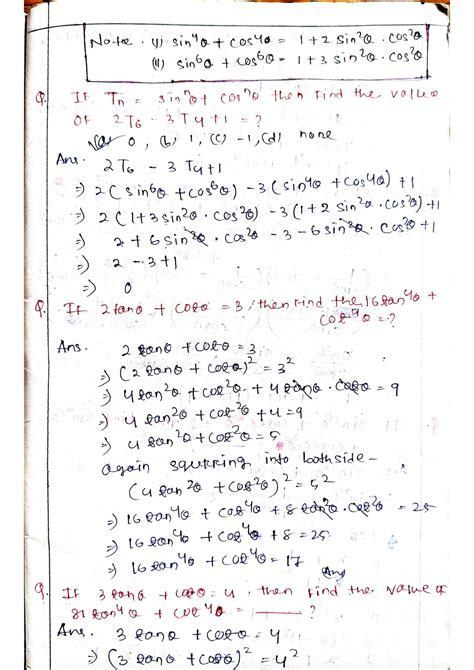 Note. (i) sin⁴θ + cos⁴θ = 1+2 sin²θ . cos²θ
(ii) sin⁶θ + cos⁶θ = 1+3 sin²θ . cos²θ
Q. If Tn = sinⁿθ + cosⁿθ then find the value
of 2T6 - 3T4+1 = ?
(a) 0, (b) 1, (c) -1, (d) none
Ans. 2T6 - 3T4+1
⇒ 2(sin⁶θ + cos⁶θ) - 3(sin⁴θ + cos⁴θ) +1
⇒ 2(1+3 sin²θ . cos²θ) - 3(1+2 sin²θ . cos²θ) +1
⇒ 2 + 6 sin²θ . cos²θ - 3 - 6 sin²θ . cos²θ +1
⇒ 2 - 3+1
⇒ 0
Q. If 2tanθ + cotθ = 3, then find the 16tan⁴θ +
cot⁴θ = ?
Ans. 2tanθ + cotθ = 3
⇒ (2tanθ + cotθ)² = 3²
⇒ 4tan²θ + cot²θ + 4tanθ . cotθ = 9
⇒ 4tan²θ + cot²θ + 4 = 9
⇒ 4tan²θ + cot²θ = 5
again squrring into bothside -
(4tan²θ + cot²θ)² = 5²
⇒ 16tan⁴θ + cot⁴θ + 8tan²θ . cot²θ = 25
⇒ 16tan⁴θ + cot⁴θ + 8 = 25
⇒ 16tan⁴θ + cot⁴θ = 17
Ans
Q. If 3tanθ + cotθ = 4, then find the value of
81tan⁴θ + cot⁴θ = ?
Ans. 3tanθ + cotθ = 4
⇒ (3tanθ + cotθ)² = 4²